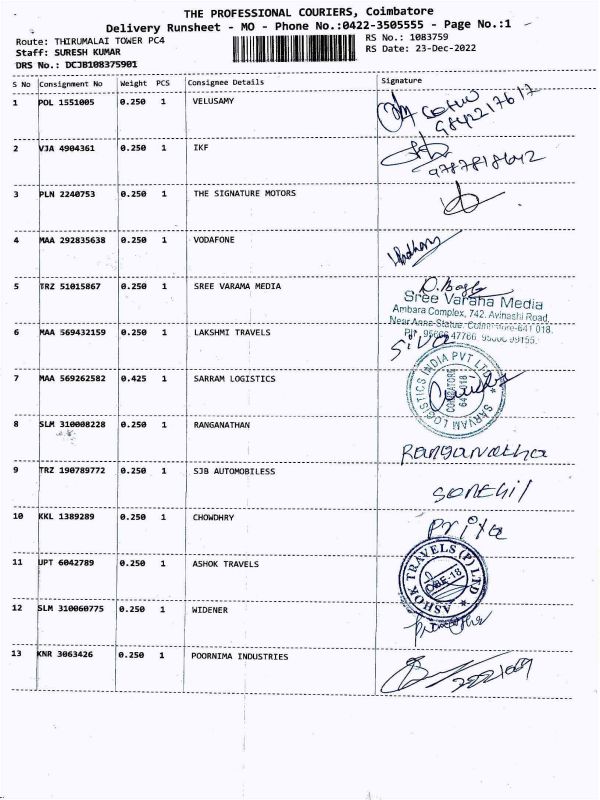 THE PROFESSIONAL COURIERS, Coimbatore
Delivery Runsheet - MO - Phone No.:0422-3505555 - Page No.:1
Route: THIRUMALAI TOWER PC4
RS No.: 1083759
Staff: SURESH KUMAR
RS Date: 23-Dec-2022
DRS No.: DCJB108375901
S No Consignment No Weight PCS Consignee Details Signature
1 POL 1551005 0.250 1 VELUSAMY
9842217617
2 VJA 4904361 0.250 1 IKF
9787818642
3 PLN 2240753 0.250 1 THE SIGNATURE MOTORS
4 MAA 292835638 0.250 1 VODAFONE
5 TRZ 51015867 0.250 1 SREE VARAMA MEDIA
Sree Varaha Media
Ambara Complex, 742, Avinashi Road,
Near Anna Statue, Coimbatore-641 018.
6 MAA 569432159 0.250 1 LAKSHMI TRAVELS
Siva
7 MAA 569262582 0.425 1 SARRAM LOGISTICS
SARVAM LOGISTICS INDIA PVT LTD
COIMBATORE
641 018
8 SLM 310008228 0.250 1 RANGANATHAN
Ranganatha
9 TRZ 190789772 0.250 1 SJB AUTOMOBILESS
10 KKL 1389289 0.250 1 CHOWDHRY
Priya
11 UPT 6042789 0.250 1 ASHOK TRAVELS
ASHOK TRAVELS (P) LTD
CBE-18
12 SLM 310060775 0.250 1 WIDENER
13 KNR 3063426 0.250 1 POORNIMA INDUSTRIES